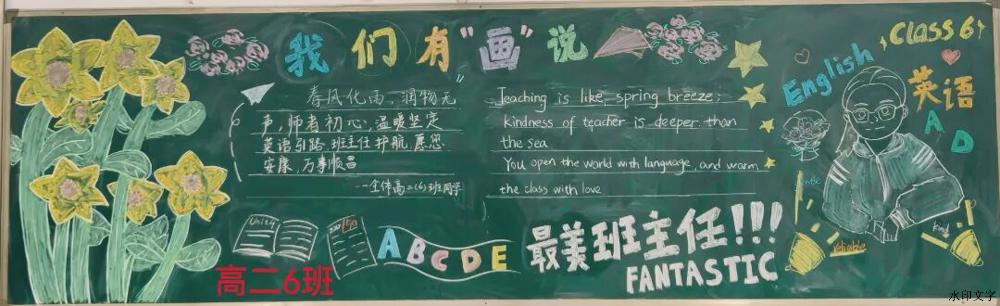 我们有"画"说
Class 6
English
英语
A
D
春风化雨，润物无
声，师者初心，温暖坚定
英语引路，班主任护航，愿您
安康，万事顺
--全体高二(6)班同学
Teaching is like spring breeze;
kindness of teacher is deeper than
the sea
You open the world with language, and warm
the class with love
Unity
A B C D E
最美班主任!!!
FANTASTIC
kind
高二6班
水印文字